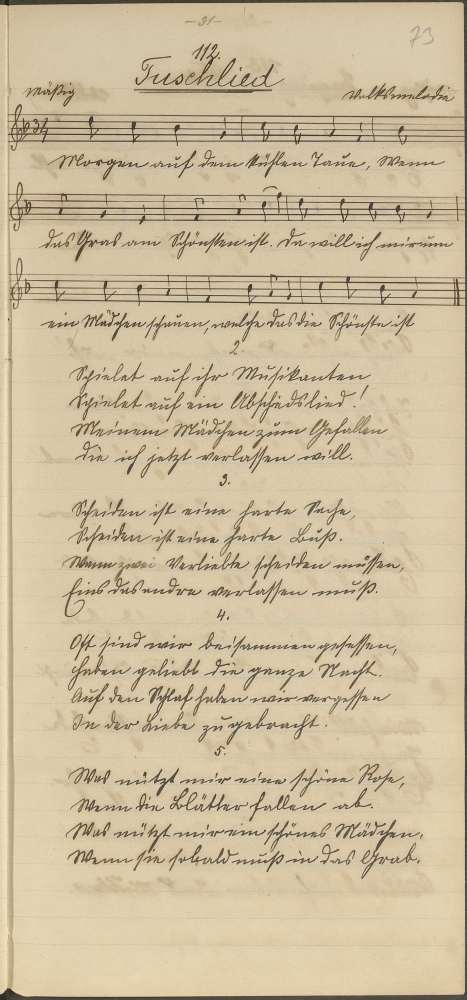 - 31 -
73
112.
Tuschlied
Mäßig
Volksmelodie
Morgen auf dem kühlen Taue, Wenn
das Gras am Schönsten ist. Da will ich mir um
ein Mädchen schauen, welche das die Schönste ist
2.
Spielet auf ihr Musikanten
Spielet auf ein Abschiedslied!
Meinem Mädchen zum Gefallen
die ich jetzt verlassen will.
3.
Scheiden ist eine harte Sache,
Scheiden ist eine harte Buß.
Wenn zwei Verliebte scheiden müssen,
Eins das andre verlassen muß.
4.
Oft sind wir beisammen gesessen,
haben geliebt die ganze Nacht.
Auf den Schlaf haben wir vergessen
In der Liebe zugebracht.
5.
Was nützt mir eine schöne Rose,
Wenn die Blätter fallen ab.
Was nützt mir ein schönes Mädchen,
Wenn sie sobald muß in das Grab.